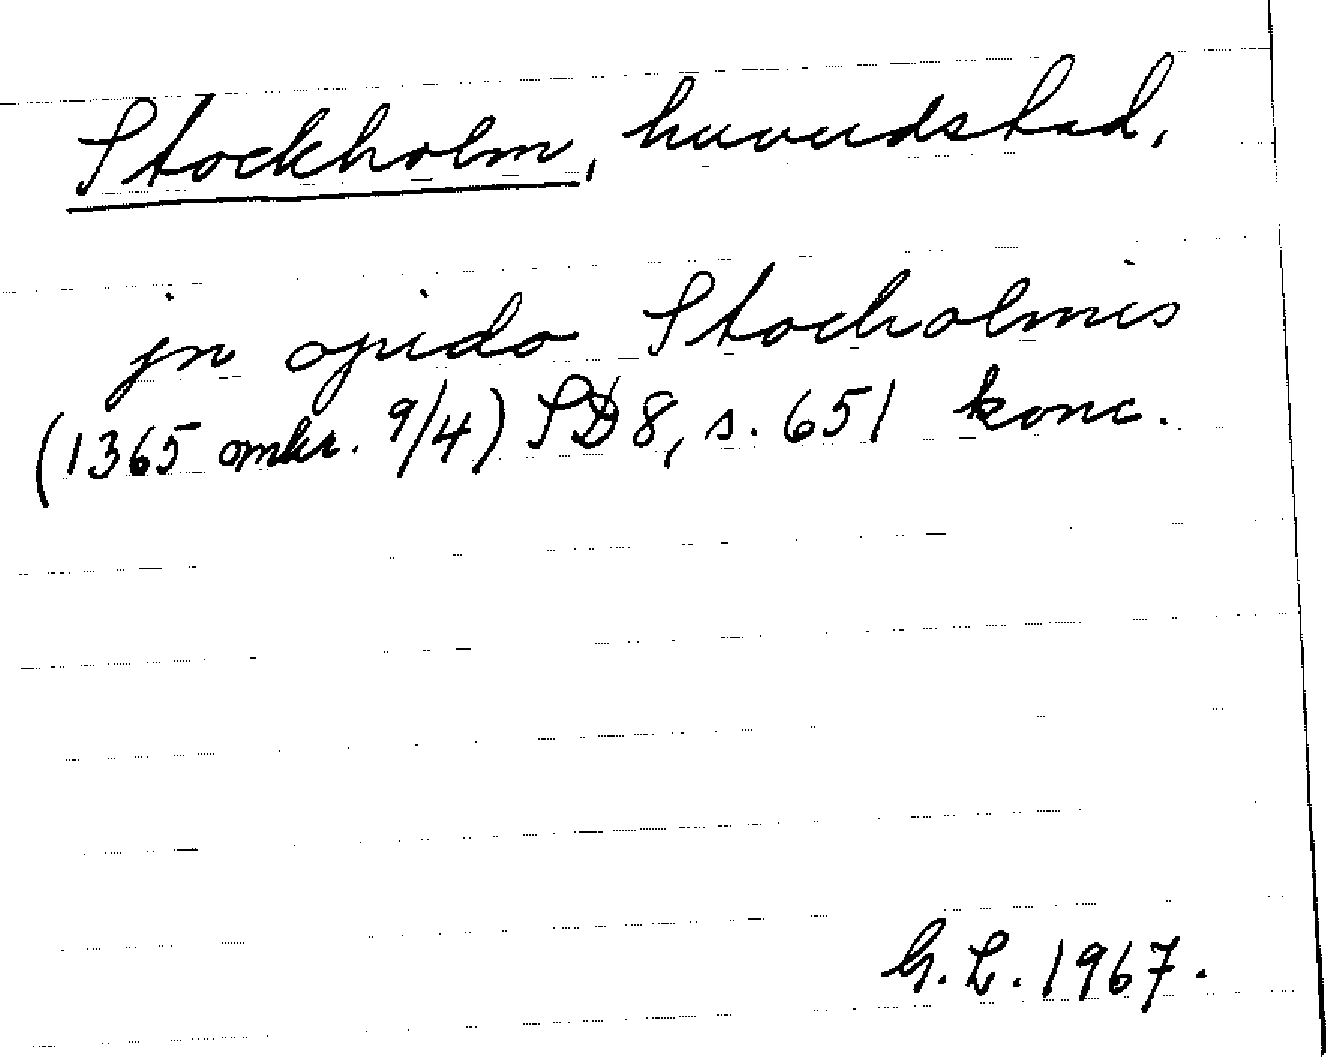 Stockholm, huvudstad.
jn opido Stocholmis
(1365 omkr. 9/4) SD 8, s. 651 konc.
G.L. 1967.